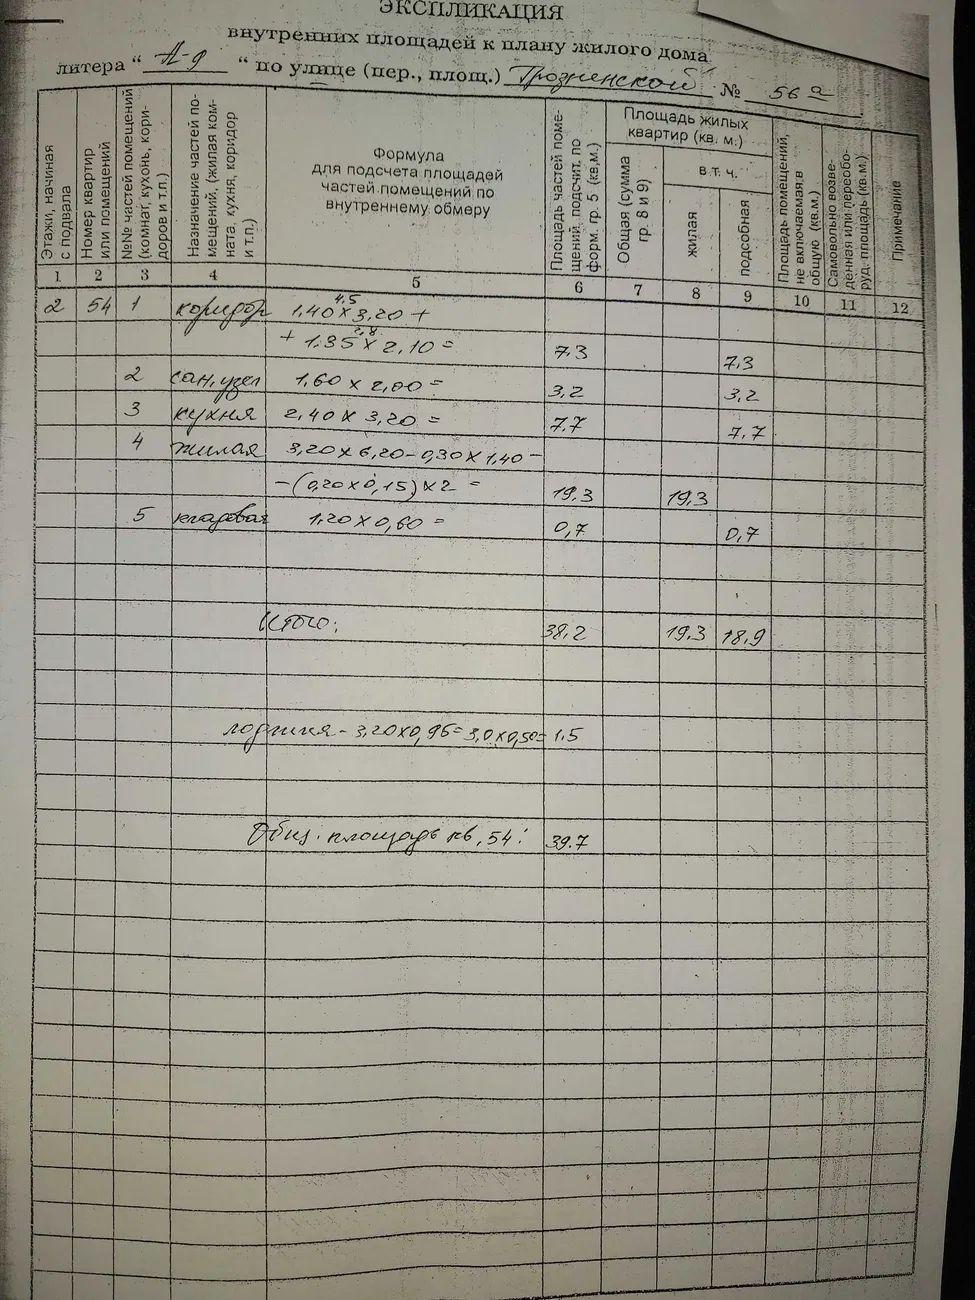 ЭКСПЛИКАЦИЯ
внутренних площадей к плану жилого дома
литера “ А-9 “ по улице (пер., площ.) Грозненской № 56 а
Этажи, начиная с подвала
Номер квартир или помещений
№№ частей помещений (комнат, кухонь, коридоров и т.п.)
Назначение частей помещений, (жилая комната, кухня, коридор и т.п.)
Формула
для подсчета площадей
частей помещений по
внутреннему обмеру
Площадь частей помещений, подсчит. по форм. гр. 5 (кв,м.)
Площадь жилых
квартир (кв. м.)
Общая (сумма гр. 8 и 9)
в т. ч.
жилая
подсобная
Площадь помещений, не включаемая в общую (кв.м.)
Самовольно возведенная или переоборуд. площадь (кв.м.)
Примечание
1 2 3 4 5 6 7 8 9 10 11 12
4,5
2 54 1 коридор 1,40 х 3,20 +
2,8
+ 1.35 х 2,10 = 7,3 7,3
2 сан,узел 1,60 х 2,00 = 3,2 3,2
3 кухня 2,40 х 3,20 = 7,7 7,7
4 жилая 3,20 х 6,20 - 0,30 х 1,40 -
- (0,20 х 0,15) х 2 = 19,3 19,3
5 кладовая 1,20 х 0,60 = 0,7 0,7
Итого: 38,2 19,3 18,9
лоджия - 3,20х0,95= 3,0х0,50= 1,5
Общ. площадь кв, 54: 39.7